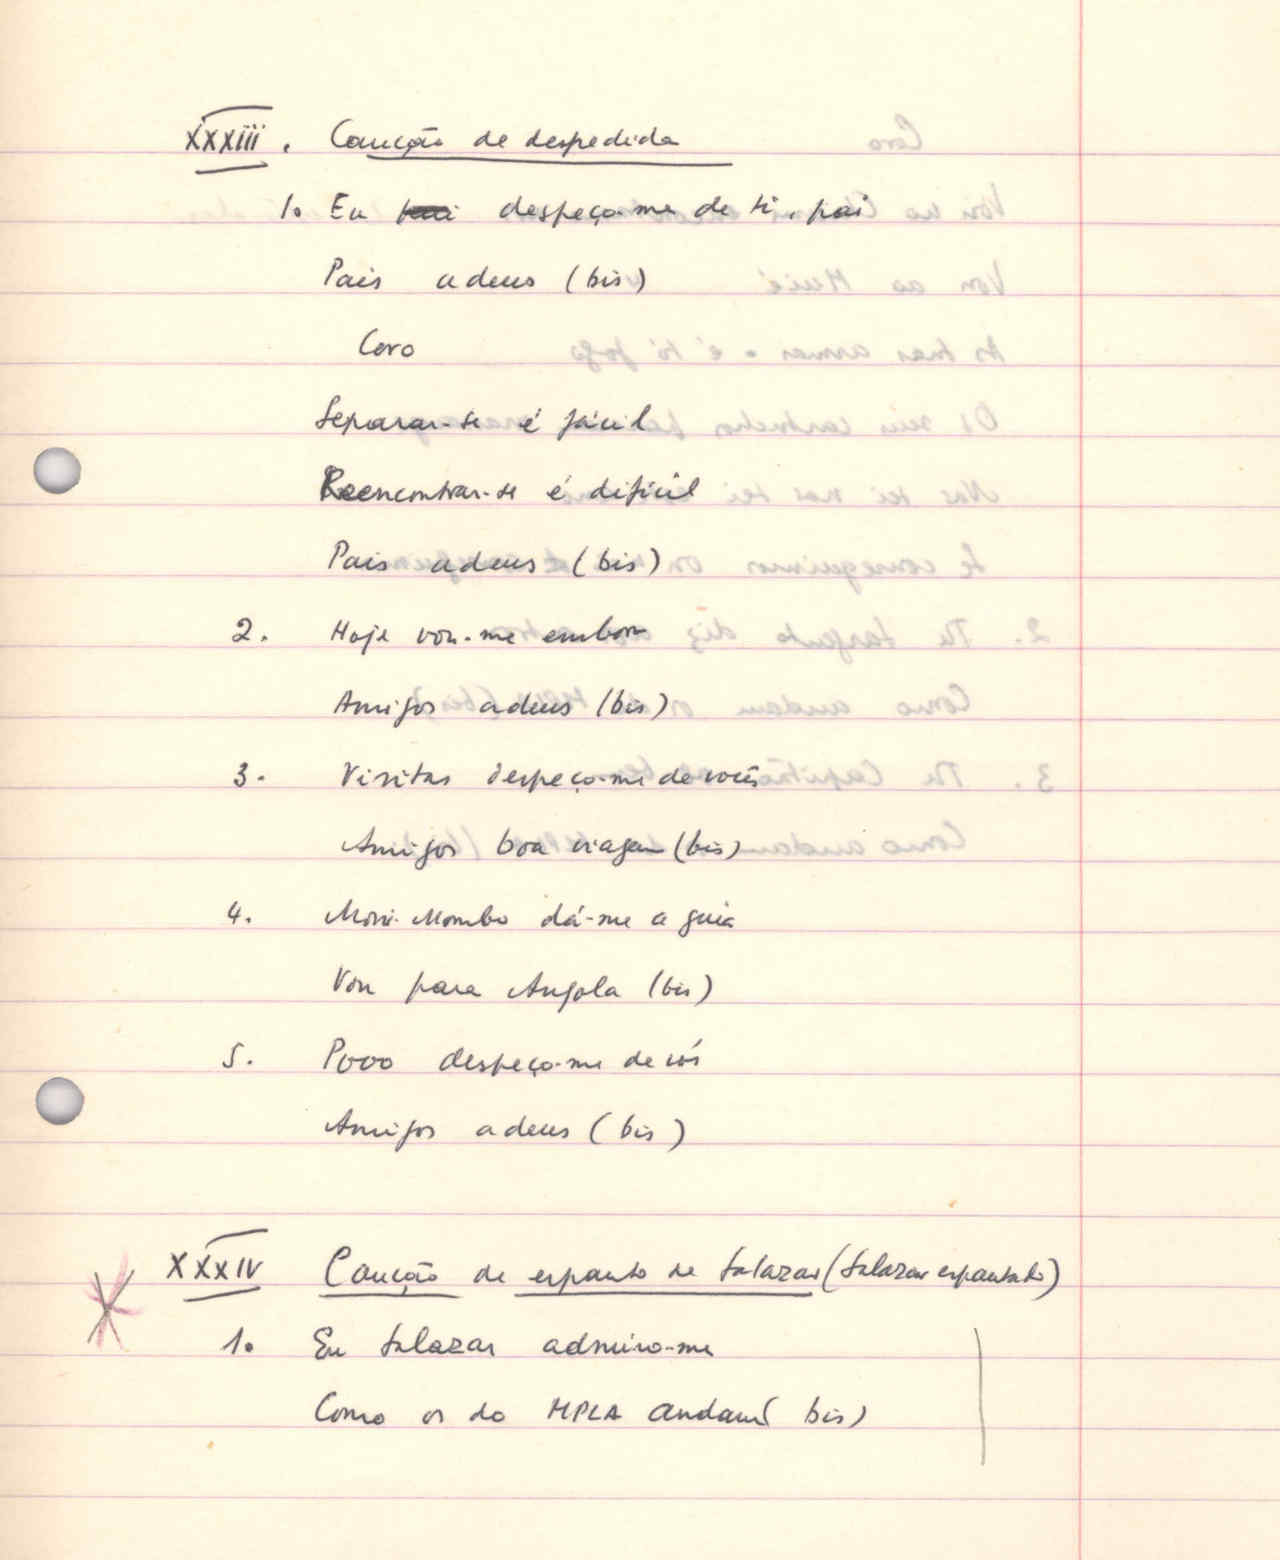 XXXiii. Canção de despedida
1. Eu despeço-me de ti, pai
Pais adeus (bis)
Coro
Separar-se é fácil
Reencontrar-se é difícil
Pais adeus (bis)
2. Hoje vou-me embora
Amigos adeus (bis)
3. Visitas despeço-me de vocês
Amigos boa viagem (bis)
4. Moni-Mombo dá-me a guia
Vou para Angola (bis)
5. Povo despeço-me de vós
Amigos adeus (bis)
XXXIV Canção de espanto de Salazar (Salazar espantado)
1. Eu Salazar admiro-me
Como os do MPLA andam (bis)